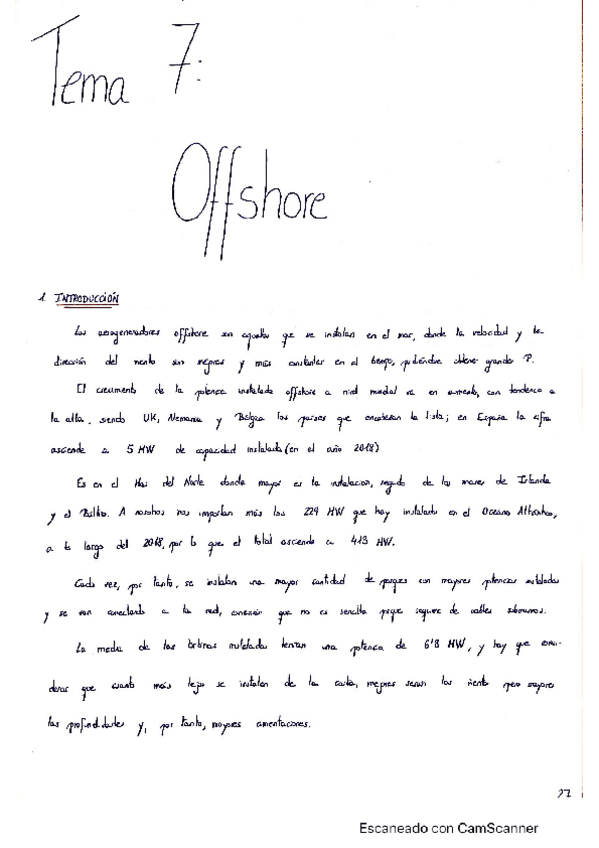 Tema 7:
Offshore
1. INTRODUCCIÓN
Los aerogeneradores offshore son aquellos que se instalan en el mar, donde la velocidad y la
dirección del viento son mejores y más constantes en el tiempo, pudiéndose obtener grandes P.
El crecimiento de la potencia instalada offshore a nivel mundial va en aumento, con tendencia a
la alta, siendo UK, Alemania y Bélgica los países que encabezan la lista; en España la cifra
asciende a 5 MW de capacidad instalada (en el año 2018)
Es en el Mar del Norte donde mayor es la instalación, seguido de los mares de Irlanda
y el Báltico. A nosotros nos importan más los 224 MW que hay instalados en el Océano Atlántico,
a lo largo del 2018, por lo que el total asciende a 413 MW.
Cada vez, por tanto, se instalan una mayor cantidad de parques con mayores potencias instaladas
y se van conectando a la red, conexión que no es sencilla porque requiere de cables submarinos.
La media de las turbinas instaladas tenían una potencia de 6'8 MW, y hay que consi-
derar que cuanto más lejos se instalen de la costa, mejores serán los vientos pero mayores
las profundidades y, por tanto, mayores cimentaciones.
Escaneado con CamScanner